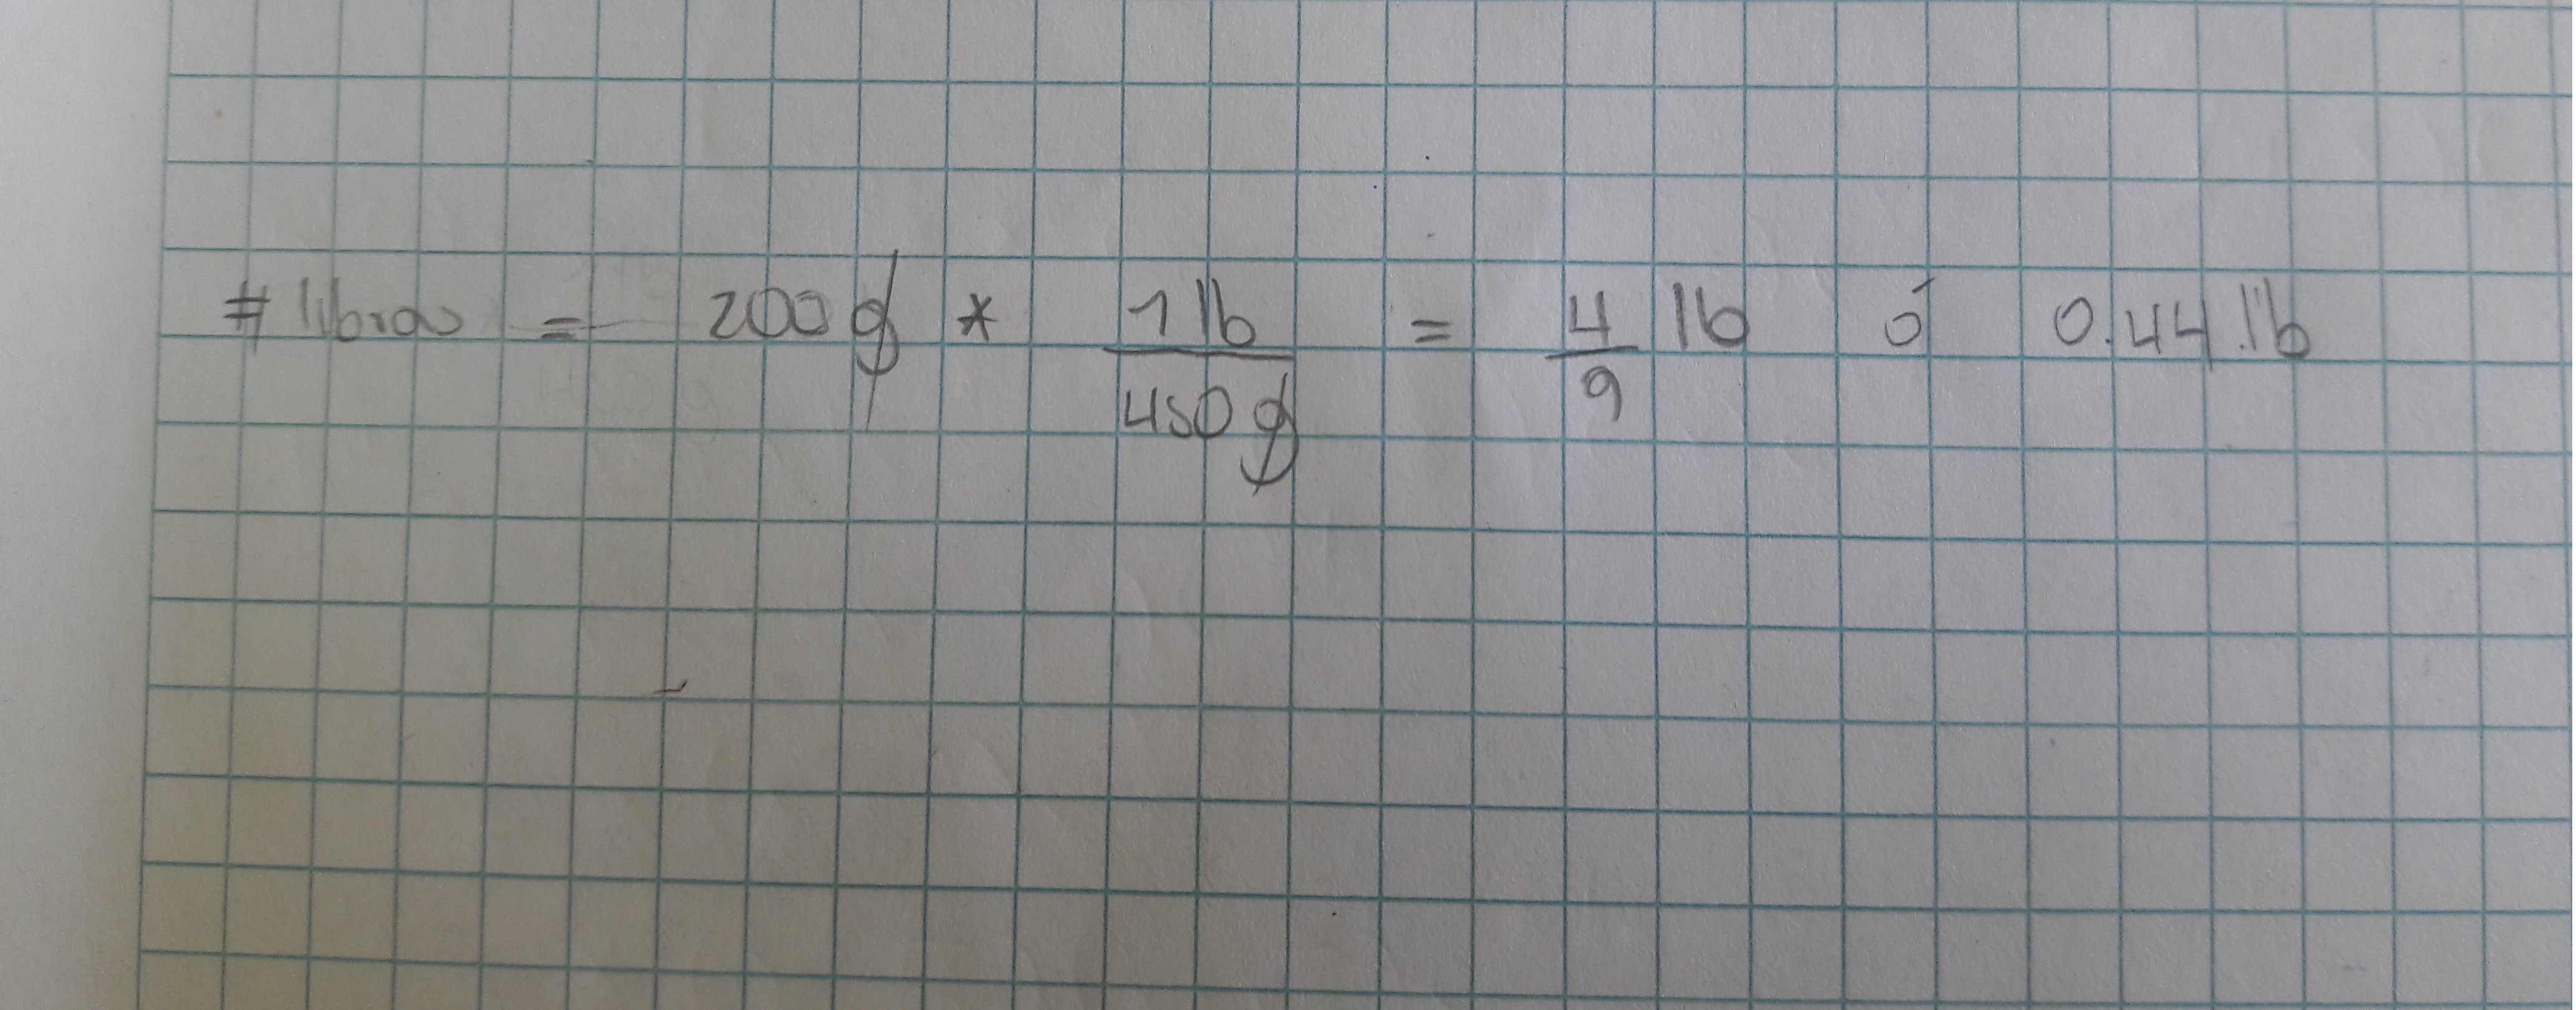 # libras = 200 g * 1 lb / 450 g = 4/9 lb ó 0.44 lb